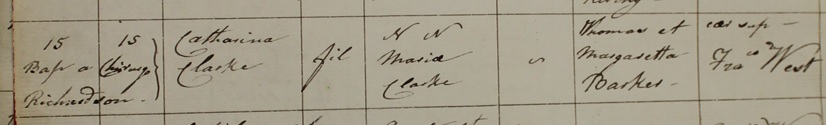 15 15 Catharina fil N N Thomas et
Bap a Chirurgo Clarke Maria Margaretta Fra co West
Richardson - Clarke Barker -